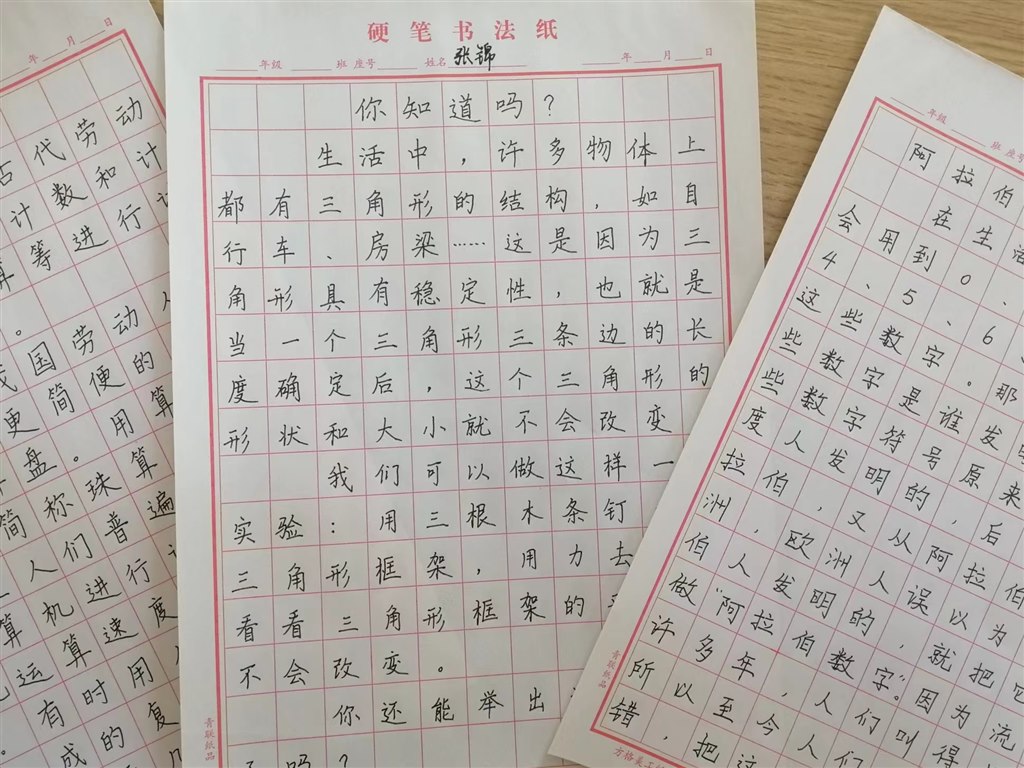 年 月 日
古代劳动
计数和计
算筹进行计
。
我国劳动人
更简便的
盘。用算
简称珠算
人们普遍
算机进行
运算速度
有时用
成的复
硬笔书法纸
年级 班 座号 姓名 张锦 年 月 日
你知道吗?
生活中,许多物体上
都有三角形的结构,如自
行车、房梁……这是因为三
角形具有稳定性,也就是
当一个三角形三条边的长
度确定后,这个三角形的
形状和大小就不会改变
我们可以做这样一
实验:用三根木条钉
三角形框架,用力去
看看三角形框架的
不会改变。
你还能举出
吗?
青联纸品
年级 班 座号
阿拉伯
在生活
会用到0、
4、5、6
这些数字。那
些数字是谁发明
些数字符号原来
度人发明的,后
拉伯,又从阿拉伯
洲,欧洲人误以为
伯人发明的,就把它
做“阿拉伯数字”。因为流
许多年,人们叫得
所以至今人们
错,把这
青联纸品
方格美工